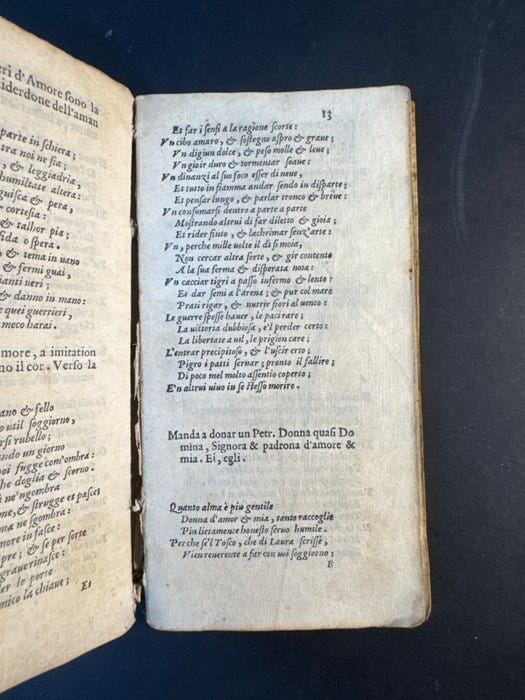 eri d'Amore sono la
iderdone dell'aman
parte in schiera;
tra noi ne sia;
, & leggiadria,
humiltate altera:
guisca & pera,
cortesia:
& talhor pia;
fida o spera.
, & tema in uano
& fermi guai,
ianti ueri;
& danno in mano:
quei guerrieri,
meco harai.
more, a imitation
no il cor. Verso la
ano & fello
o util soggiorno,
arsi rubello;
ando un giorno
noi fugge com'ombra:
he doglia & scorno.
à ne'ngombra
me, & strugge et pasce;
ma ne sgombra:
more in fasce:
pre; & se per sorte
graue rinasce:
le porte
mico la chiaue;
Et
13
Et far i sensi a la ragione scorte:
Vn cibo amaro, & sostegno aspro & graue;
Vn digiun dolce, & peso molle & leue;
Vn gioir duro & tormentar soaue:
Vn dinanzi al suo foco esser di neue,
Et tutto in fiamma andar sendo in disparte;
Et pensar lungo, & parlar tronco & breue:
Vn consumarsi dentro a parte a parte
Mostrando altrui di far diletto & gioia;
Et rider finto, & lachrimar senz'arte:
Vn, perche mille uolte il dì si moia,
Non cercar altra sorte, & gir contento
A la sua ferma & disperata noia:
Vn cacciar tigri a passo infermo & lento:
Et dar semi a l'arena; & pur col mare
Prati rigar, & nutrir fiori al uento:
Le guerre spesse hauer, le paci rare;
La uittoria dubbiosa, e'l perder certo:
La libertate a uil, le prigion care;
L'entrar precipitoso, & l'uscir erto:
Pigro i patti seruar; pronto il fallire;
Di poco mel molto assentio coperto;
E'n altrui uiuo in se stesso morire.
Manda a donar un Petr. Donna quasi Do
mina, Signora & padrona d'amore &
mia. Ei, egli.
Quanto alma è piu gentile
Donna d'amor & mia, tanto raccoglie
Piu lietamente honesto seruo humile.
Perche se'l Tosco, che di Laura scrisse,
Vien reuerente a far con uoi soggiorno;
B